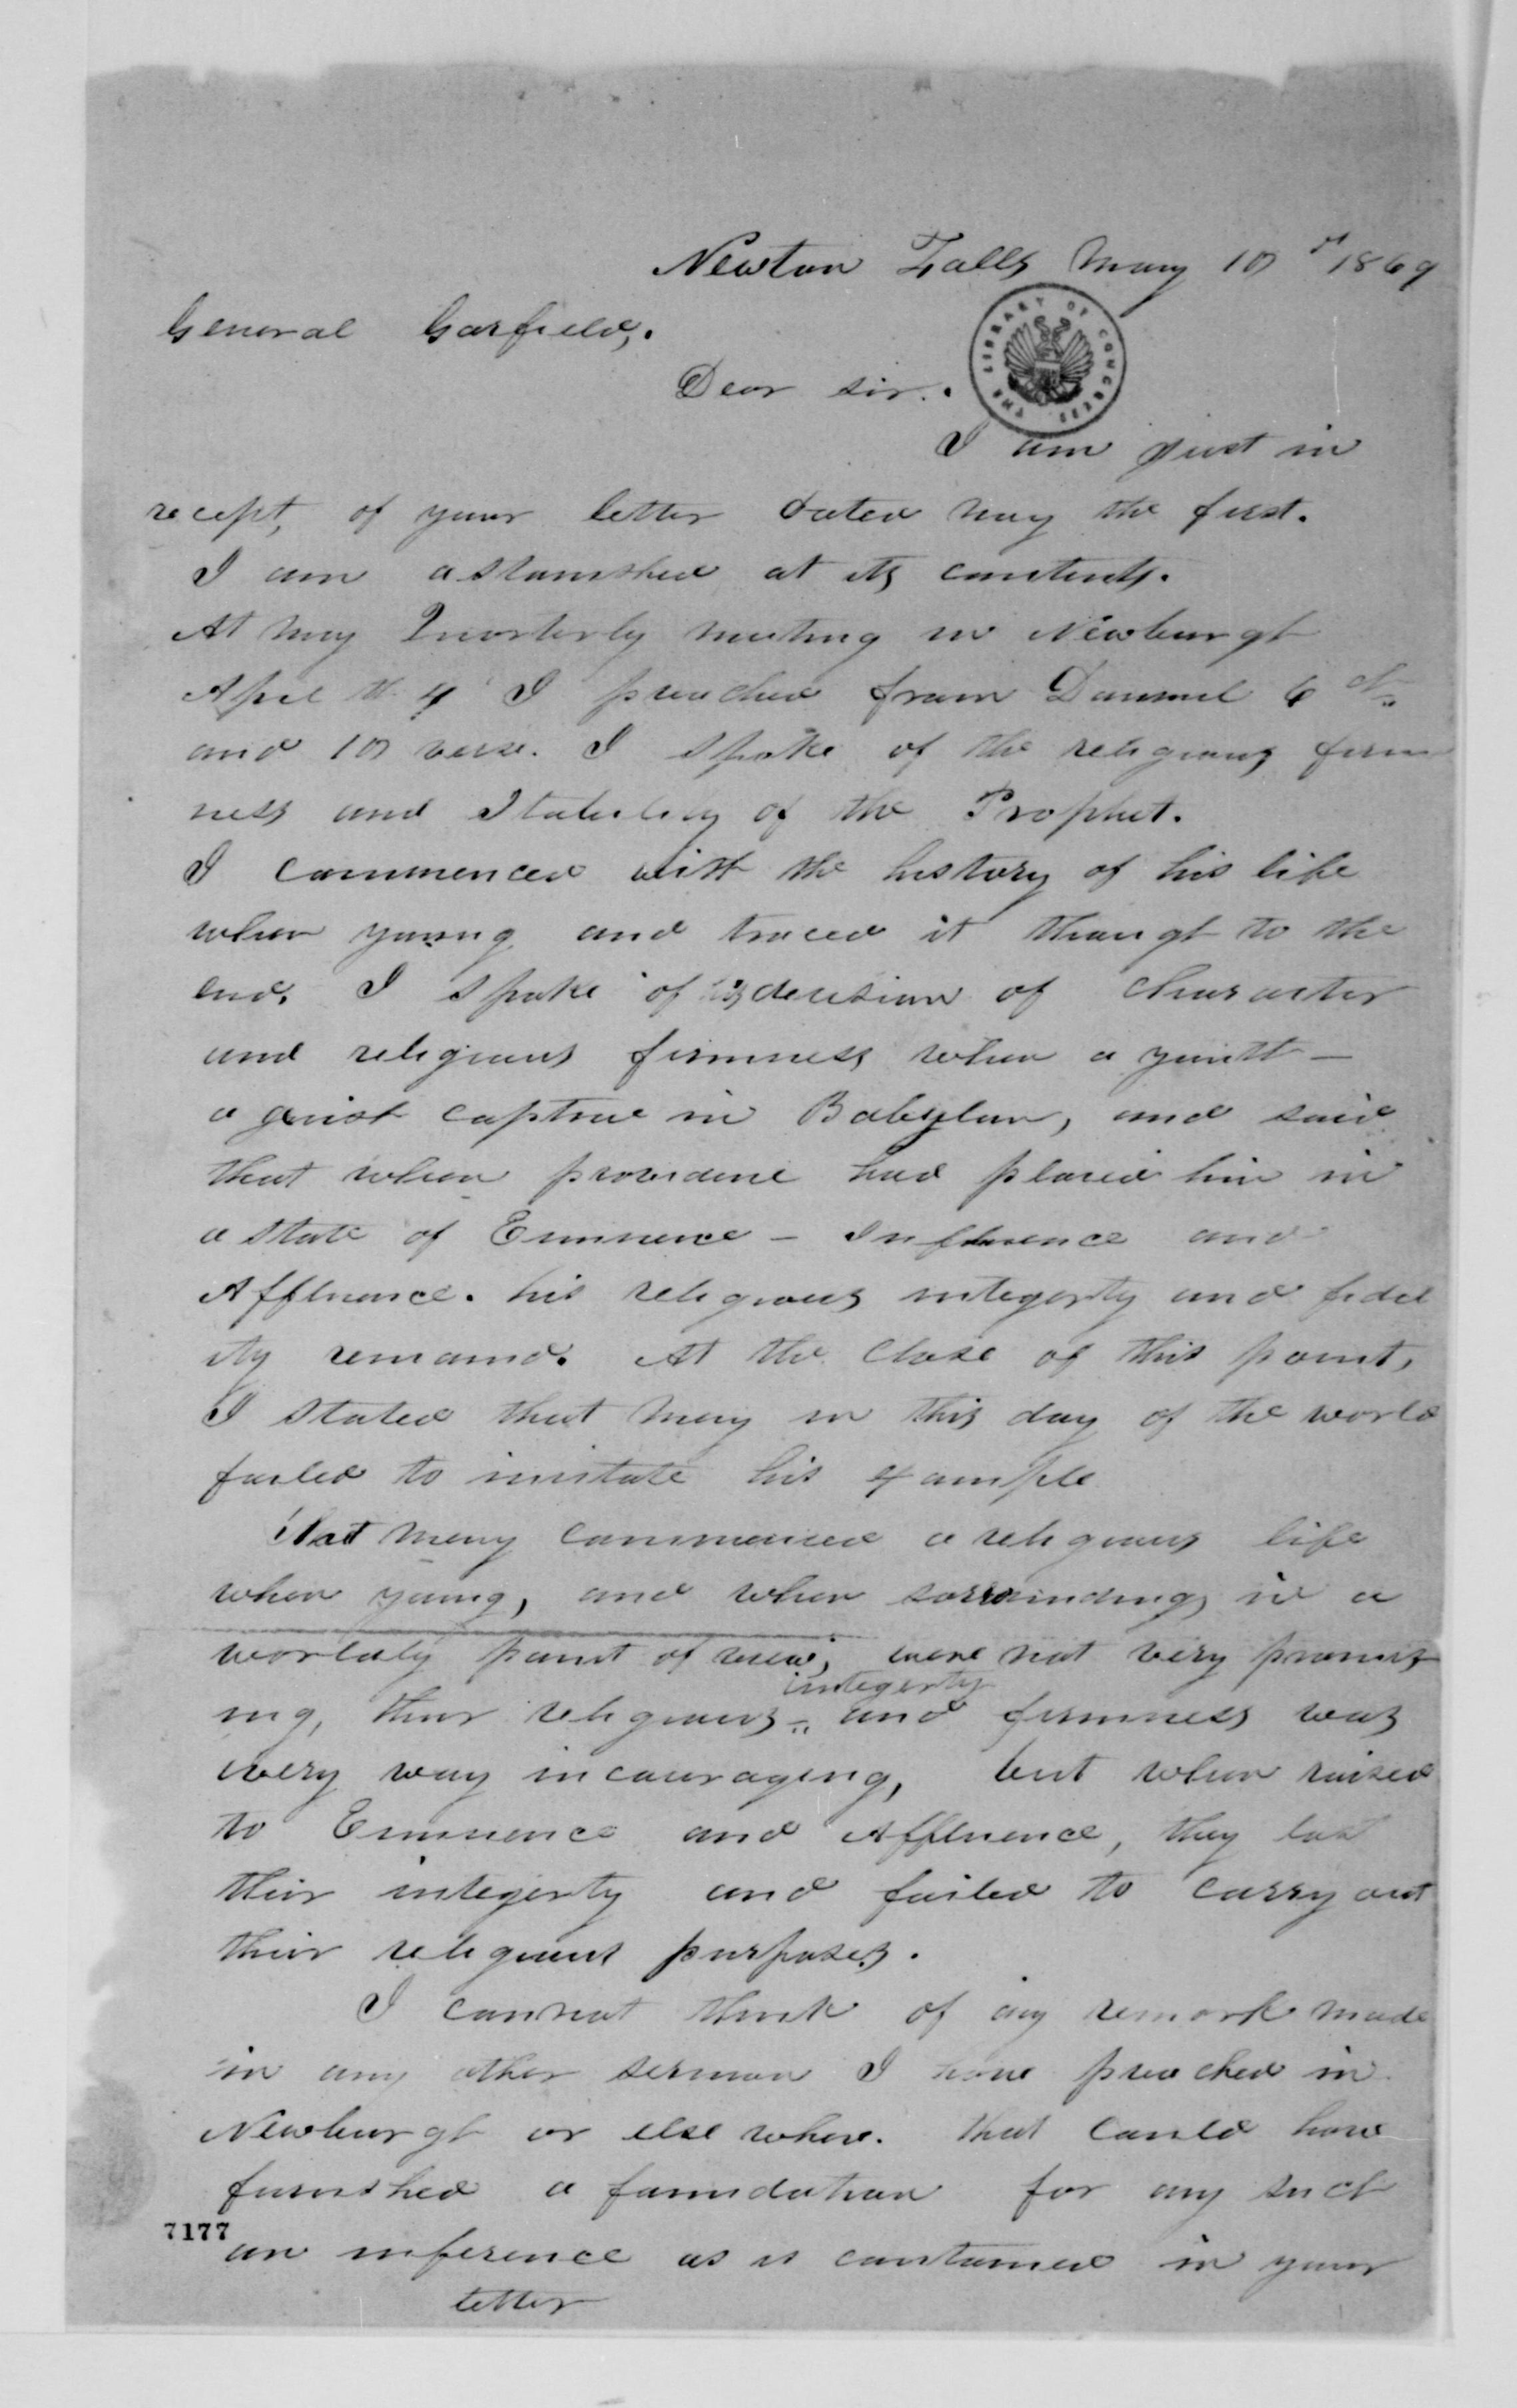 Newton Falls May 10th 1869
General Garfield,.
THE LIBRARY OF CONGRESS
Dear sir.
I am just in
recept, of your letter dated may the first.
I am astonished at its contents.
At my Quorterly meeting in Newburgh
April th 4 I preached from Danniel 6 ch.
and 10 verse. I spoke of the religious firm
ness and Stability of the Prophet.
I commenced with the history of his life
when young and traced it though to the
end. I spoke of his decision of character
and religious firmness when a youth —
a quist captive in Babylon, and said
that when providence had placed him in
a state of Eminence – Influence and
Affluence. his religious integerty and fidel
ity remaind. At the close of this point,
I stated that many in this day of the world
failed to imitate his example
That many commenced a religious life
when young, and when sorroundings in a
worldly point of view, were not very promis
integerty
ing, their religious and firmness was
every way incouraging, but when raised
to Eminence and Affluence, they lost
their integerty and failed to carry out
their religious purposes.
I cannot think of any remark made
in any other sermon I have preached in
Newburgh or else where. that could have
furnished a foundation for any such
7177
an inference as is contained in your
letter